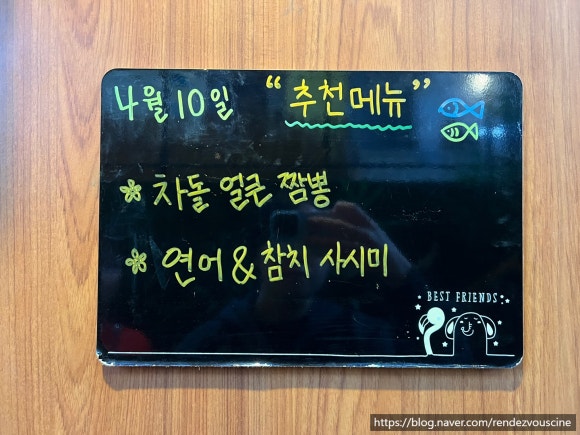 4월 10일 "추천메뉴"
차돌 얼큰 짬뽕
연어 & 참치 사시미
BEST FRIENDS
https://blog.naver.com/rendezvouscine